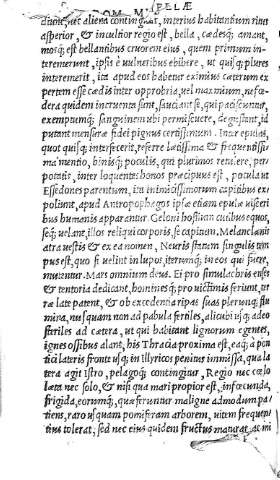 POM. MELÆ
diunt, nec aliena contingunt, interius habitantium ritus
asperior, & incultior regio est, bella, cædesq́; amant,
mosq́; est bellantibus cruorem eius, quem primum in-
teremerunt, ipsis è vulneribus ebibere, ut quisq́; plures
interemerit, ita apud eos habetur eximius cæterum ex
pertem esse cædis inter opprobria, vel maximum, ne fœ-
dera quidem incruenta sunt, sauciant se, qui paciscuntur,
exemptumq́; sanguinem ubi permiscuere, degustant, id
putant mensuræ fidei pignus certissimum. Inter epulas,
quot quisq́; interfecerit, referre lætissima & frequentissi-
ma mentio, binisq́; poculis, qui plurimos retulere, per-
potant, inter loquentes honos præcipuus est, pocula ut
Essedones parentum, ita inimicissimorum capitibus ex-
poliunt, apud Antropophagos ipsæ etiam epulæ visceri
bus humanis apparantur. Geloni hostium cutibus equos,
seq́; velant, illos reliqui corporis, se capitum. Melanclænis
atra vestis & ex ea nomen, Neuris statum singulis tem
pus est, quo si velint in lupos, iterumq́; in eos qui fuere,
mutentur. Mars omnium deus. Ei pro simulachris enses
& tentoria dedicant, hominesq́; pro victimis feriunt, ter
ræ late patent, & ob excedentia ripas suas plerunq́; flu
mina, nusquam non ad pabula fertiles, alicubi usq́; adeo
steriles ad cætera, ut qui habitant lignorum egentes,
ignes ossibus alant, his Thracia proxima est, eaq́; à pon
tici lateris fronte usq́; in illyricos penitus immissa, qua la
tera agit Istro, pelagoq́; contingitur, Regio nec cœlo
læta nec solo, & nisi qua mari propior est, infœcunda,
frigida, eorumq́; quæ seruntur maligne admodum pa-
tiens, raro usquam pomiferam arborem, vitem frequen
tius tolerat, sed nec eius quidem fructus maturat, ac mi